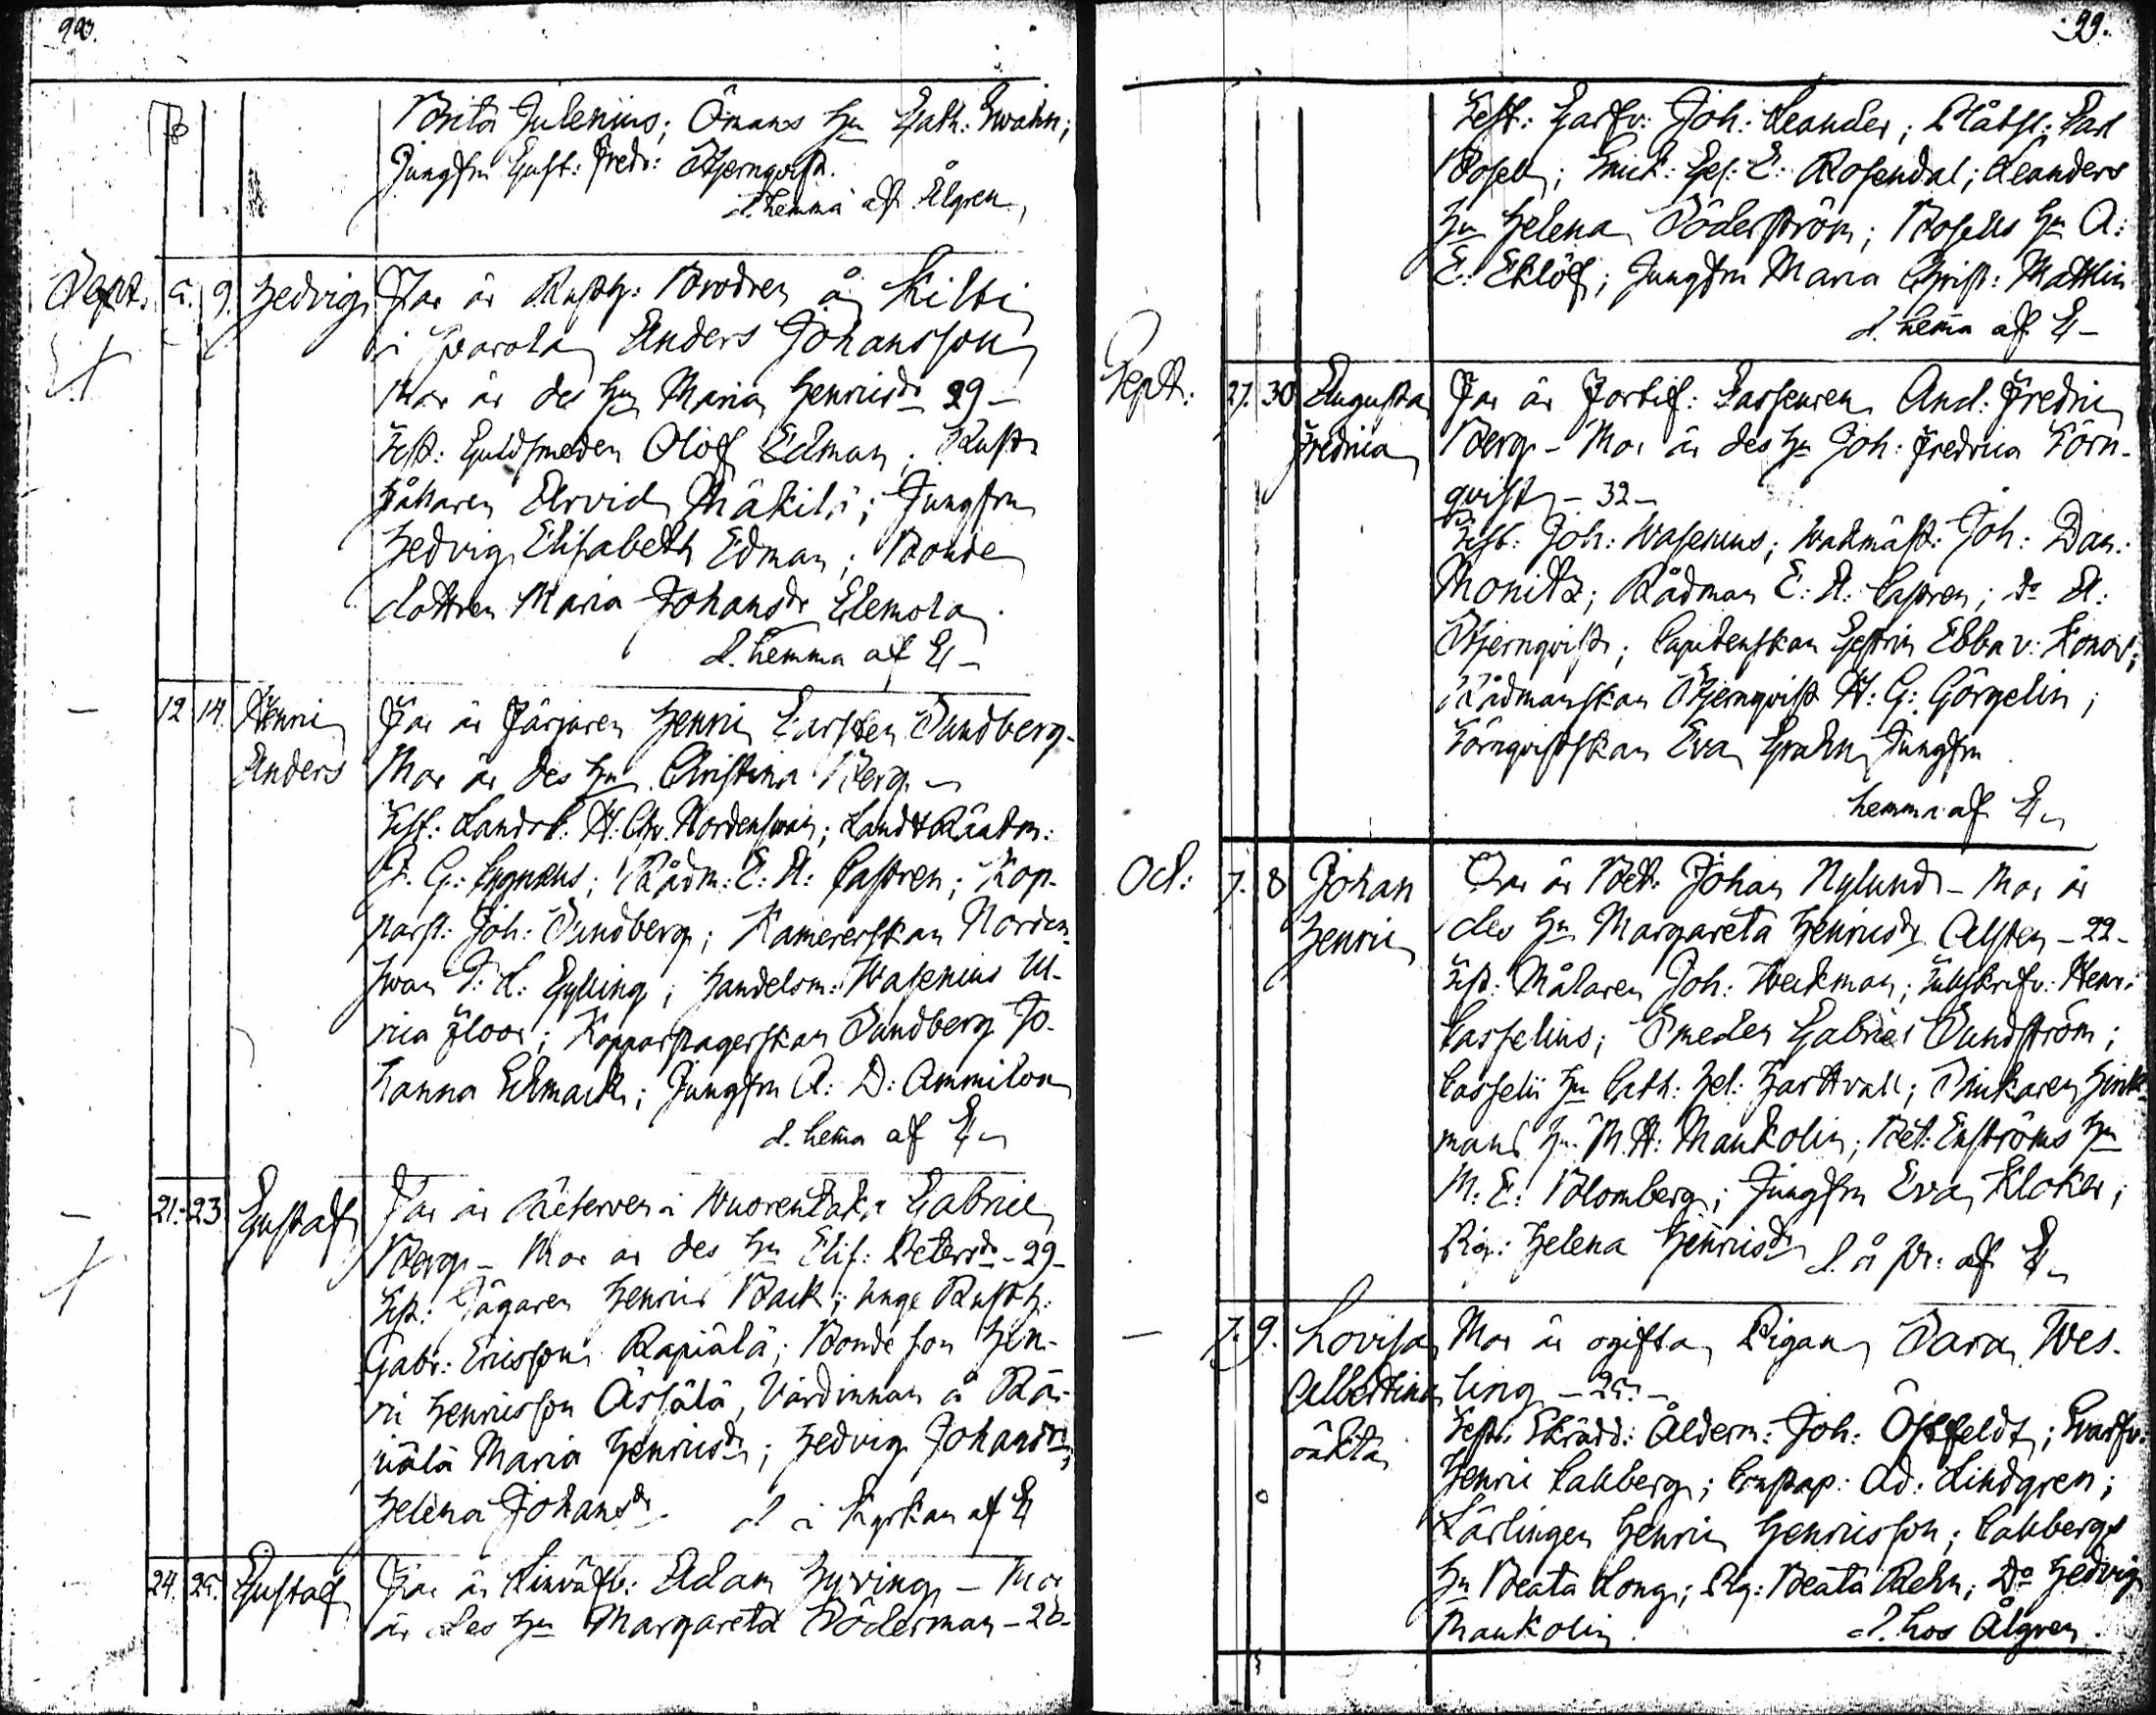 Brita Julenius; Ömans Hu Cath: Swahn;
Jungfru Gust: Fredr: Stjernqvist.
d. hemma af Ålgren
Sept. 5. 9. Hedvig Far är Rusth: Brodren å Kilti
i Harola Anders Johansson
Mor är des Hu Maria Henricsdr 29 -
Test: Guldsmeden Olof Edman; Rust
hållaren Arvid Mäkilä; Jungfru
Hedvig Elisabeth Edman; Bonde
dottren Maria Johansdr Elemola.
d. hemma af E -
12 14. Henric Far är Färjaren Henric Carsten Sundberg -
Anders Mor är des Hu Christina Berg -
Test: Landsk: H: Chr. Nordenswan; Landt Räntm:
F. G: Cygnæus; Rådm: E: H: Castren; Kop-
parsl: Joh: Sundberg; Kamererskan Norden-
swan Gylling; Handelsm: Wasenius Ul-
rica Floor; Kopparslagerskan Sundberg Jo-
hanna Ekmark; Jungfru A: D: Ammilon
d. hema af E -
21. 23 Gustaf Far är i Wuorentaka Gabriel
Berg - Mor är des Hu Elis: Petersdr - 29 -
Test: Jägaren Henric Back; unge Rusth:
Gabr: Ericsson Rapiälä; Bonde son Hen-
ric Henricsson Ässälä, Värdinnan å Rä-
piälä Maria Henricsdr; Hedvig Johansdr;
Helena Johansdr. d i Kyrkan af E
24. 25. Gustaf Far är Linväfv: Adam Hyving - Mor
är des Hu Margareta Söderman - 26 -
99.
Test: Garfv: Joh: Leander; Plåtsl: Carl
Bosell; Smick: Ges: E: Rosendal; Leanders
Hu Helena Söderström; Bosells Hu A:
E: Eklöf; Jungfru Maria Christ: Mattlin
d. hema af E -
Sept: 27. 30 Augusta Far är Fortif: Casseuren And: Fredric
Fredrica Berg - Mor är des Hu Joh: Fredrica Törn-
qvist - 32 -
Test: Joh: Wasenius; Wakmäst: Joh: Dan:
Monitz; Rådman E: H: Castren; Do A:
Stjernqvist; Capitenskan Ebba v: Konow;
Rådmanskan Stjernqvist H: G: Görgelin;
Törnqvistskan Eva Grahn Jungfru
hemma af E -
Oct: 7. 8 Johan Far är Bet: Johan Nylund - Mor är
Henric des Hu Margareta Henricsdr Alsten - 22 -
Test: Målaren Joh: Weckman; Tullskrifv: Henr:
Casselius; Smeden Gabriel Sundström;
Casselii Hu Cath: Hel: Harttvall; Snickaren Hink-
mans Hu M. H: Mankolin; Bet: Enströms Hu
M: E: Blomberg; Jungfru Eva Kloker;
Pig: Helena Henricsdr d. å Pr: af E -
7. 9. Lovisa Mor är ogifta Pigan Sara Wes-
Albertina ling - 25 -
oäkta Test: Skrädd: Ålderm: Joh: Östfeldt; Svarfv:
Henric Callberg; Constap: Ad: Lindgren;
Lärlingen Henric Henricsson; Callbergs
Hu Beata Long; Pig: Beata Rehn; Do Hedvig
Mankolin. d. hos Ålgren.